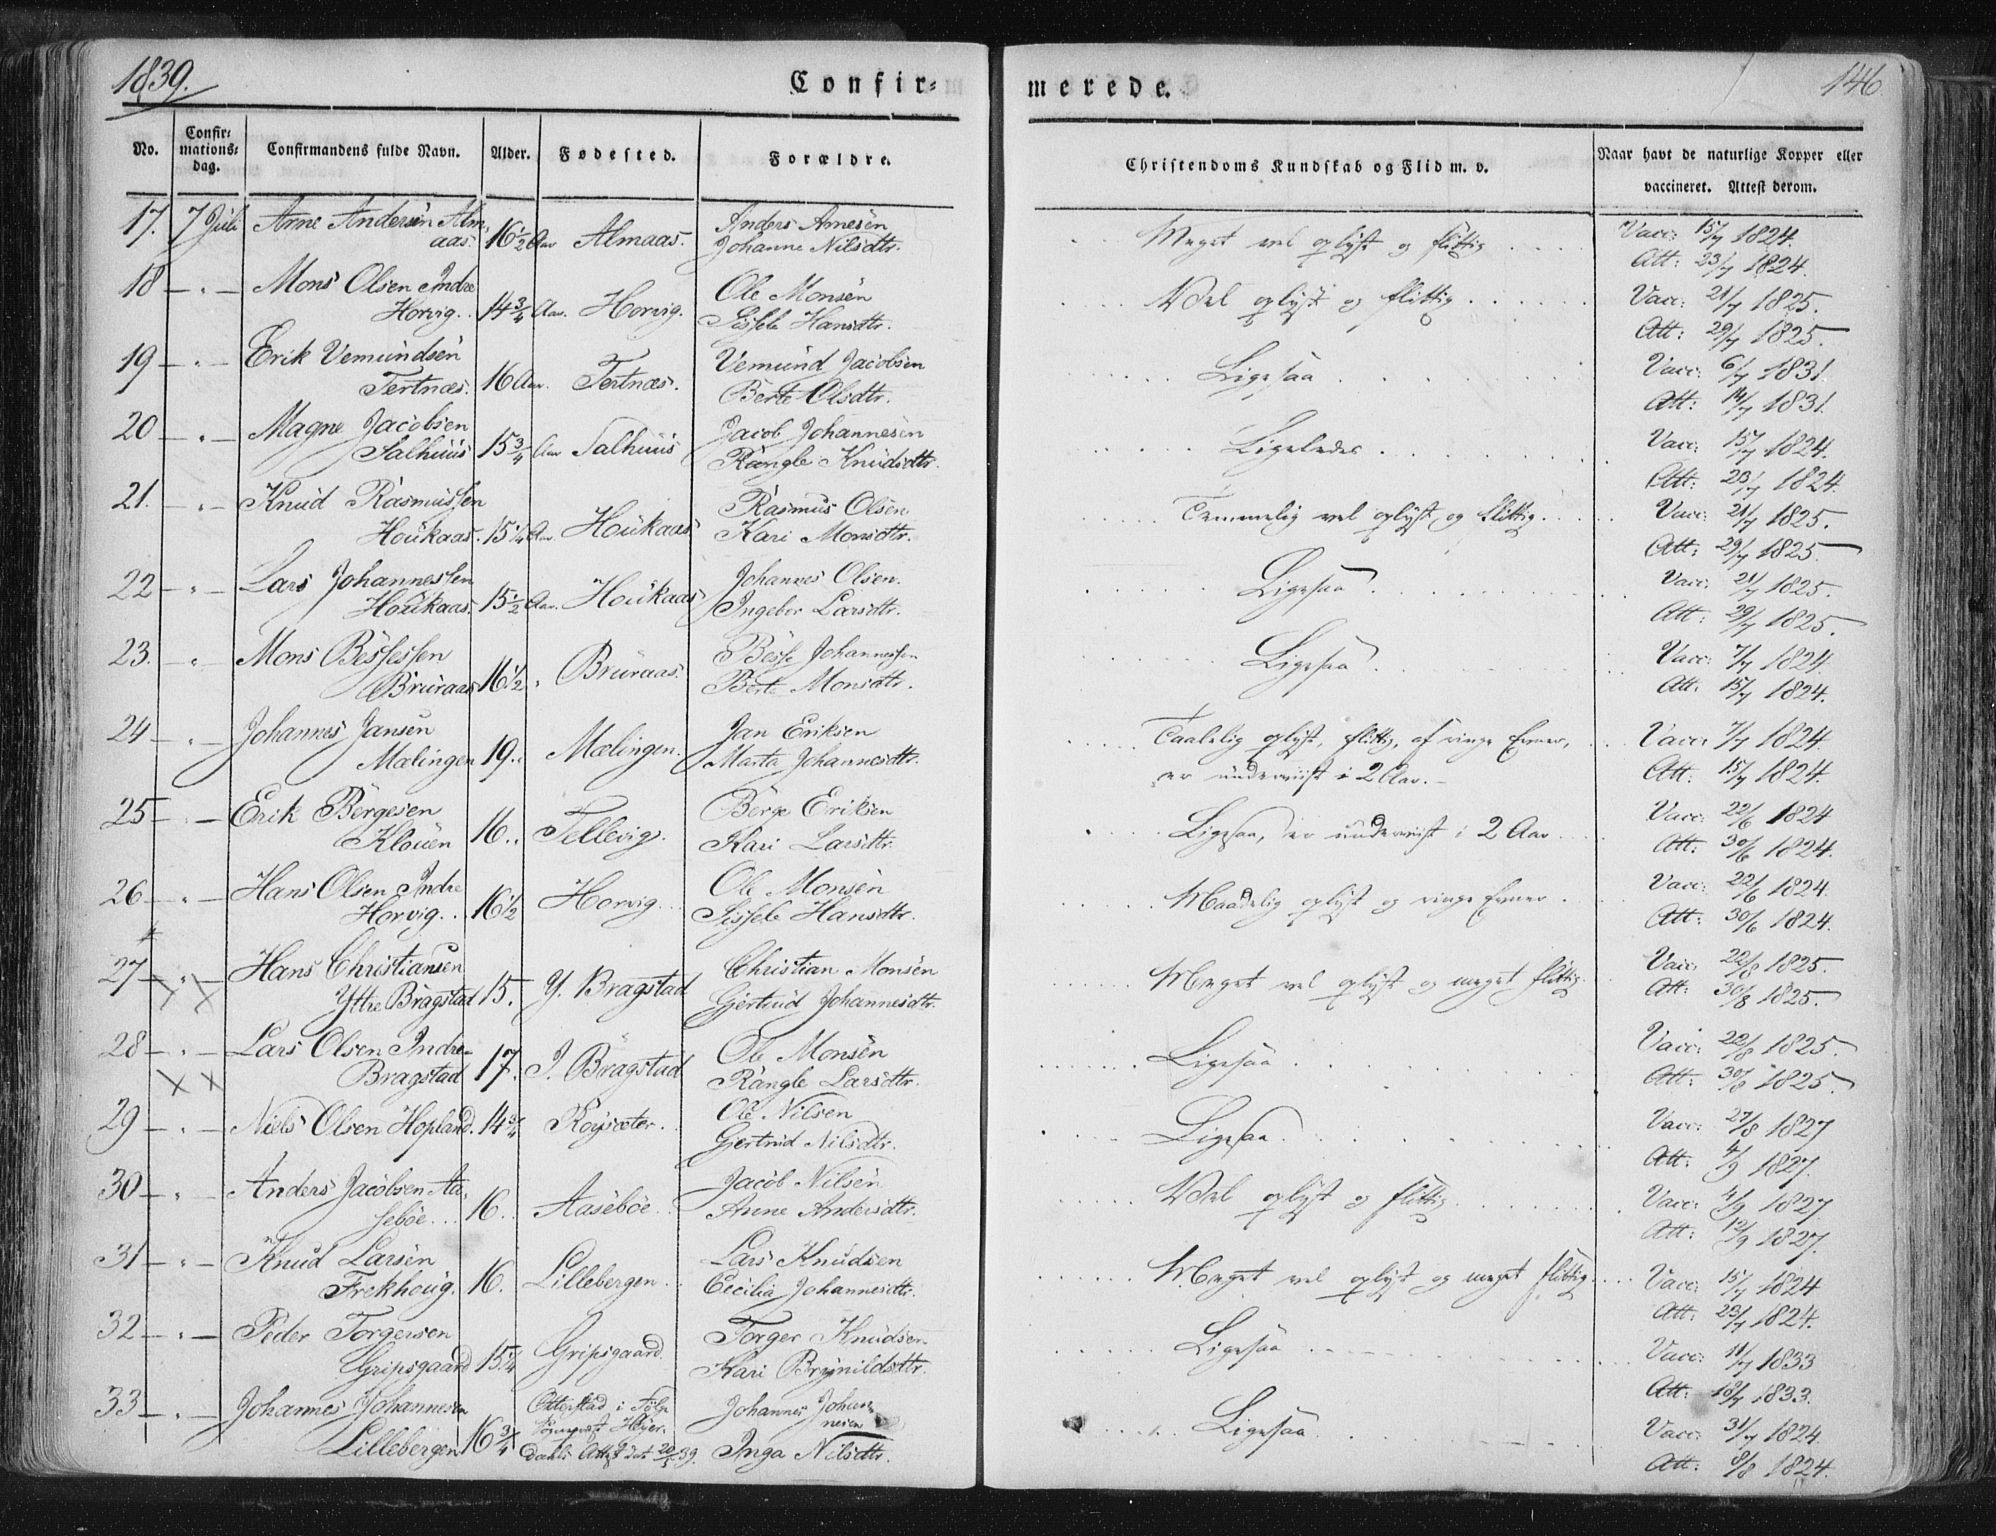 1839.
Confir=
merede.
146.
No.
Confir=
mations=
dag.
Confirmandens fulde Navn.
Alder.
Fødested.
Forældre.
Christendoms Kundskab og Flid m. v.
Naar havt de naturlige Kopper eller
vaccineret. Attest derom.
17. 7 Juli Arne Andersen Alm- Anders Arnesen Vacc: 15/7 1824.
aas. 16½ Aar Almaas. Johanne Nilsdtr. Meget vel oplyst og flittig Att: 23/7 1824.
18 — " — Mons Olsen Indre Ole Monsen Vacc: 21/7 1825.
Horvig. 14¾ Aar. Horvig. Sissele Hansdtr. Vel oplyst og flittig Att: 29/7 1825.
19 — " — Erik Vemundsen Vemund Jacobsen Vacc: 6/7 1831.
Tertnæs. 16 Aar. Tertnæs. Berte Olsdtr. Ligesaa Att: 14/7 1831.
20 — " — Magne Jacobsen Jacob Johannesen Vacc: 15/7 1824.
Salhuus 15¾ Aar Salhuus Rangle Knudsdtr. Ligeledes Att: 23/7 1824.
21. — " — Knud Rasmussen Rasmus Olsen Vacc: 21/7 1825.
Houkaas. 15¼ Aar. Houkaas Kari Monsdtr. Temmelig vel oplyst og flittig. Att: 29/7 1825
22 — " — Lars Johannessen Johannes Olsen. Vacc: 21/7 1825.
Houkaas. 15½ Aar. Houkaas Ingebor Larsdtr. Ligesaa Att: 29/7 1825.
23. — " Mons Bessessen Besse Johannessen Vacc: 7/7 1824.
Bruraas 16½ " Bruraas. Berte Monsdtr. Ligesaa Att: 15/7 1824.
24 — " — Johannes Jansen Jan Eriksen Taalelig oplyst, flittig, af ringe Evner, Vacc: 7/7 1824
Mælingen 19. " Mælingen. Marta Johannesdtr. er underviist i 2 Aar. — Att: 15/7 1824.
25 — " — Erik Børgesen Børge Eriksen Vacc: 22/6 1824
Klouen 16. " Tellevig. Kari Larsdtr. Ligesaa, er underviist i 2 Aar Att: 30/6 1824.
26 — " — Hans Olsen Indre Ole Monsen Vacc: 22/6 1824.
Horvig. 16½ Horvig. Sissele Hansdtr. Maadelig oplyst og ringe Evner Att: 30/6 1824.
27 — " — Hans Christiansen Christian Monsen Vacc: 22/8 1825.
Yttre Bragstad 15. Y. Bragstad Gjertrud Johannesdtr. Meget vel oplyst og meget flittig Att: 30/8 1825.
28 — " — Lars Olsen Indre- Ole Monsen Vacc: 22/8 1825.
Bragstad 17. I. Bragstad Rangle Larsdtr. Ligesaa Att: 30/8 1825
29 — " — Niels Olsen Hopland. 14¾ Røysæter. Ole Nilsen Vacc: 27/8 1827
Gjertrud Nilsdtr. Ligesaa Att: 4/9 1827.
30 — " — Anders Jacobsen Aa- Jacob Nilsen Vacc: 4/9 1827
sebøe 16. Aasebøe Anne Andersdtr. Vel oplyst og flittig Att: 12/9 1827.
31 — " — Knud Larsen Lars Knudsen Vacc: 15/7 1824
Frekhoug. 16. Lillebergen Cecilia Johannesdtr. Meget vel oplyst og meget flittig Att: 23/7 1824.
32 — " — Peder Torgersen Torger Knudsen Vacc: 11/7 1833
Gripsgaard 15¼ Gripsgaard. Kari Brynildsdtr. Ligesaa Att: 18/7 1833.
33 — " — Johannes Johannesen Otterstad i Johannes Johan- Vacc: 31/7 1824.
nesen
Lillebergen 16¾ 39. Inga Nilsdtr. Ligesaa Att: 8/8 1824.